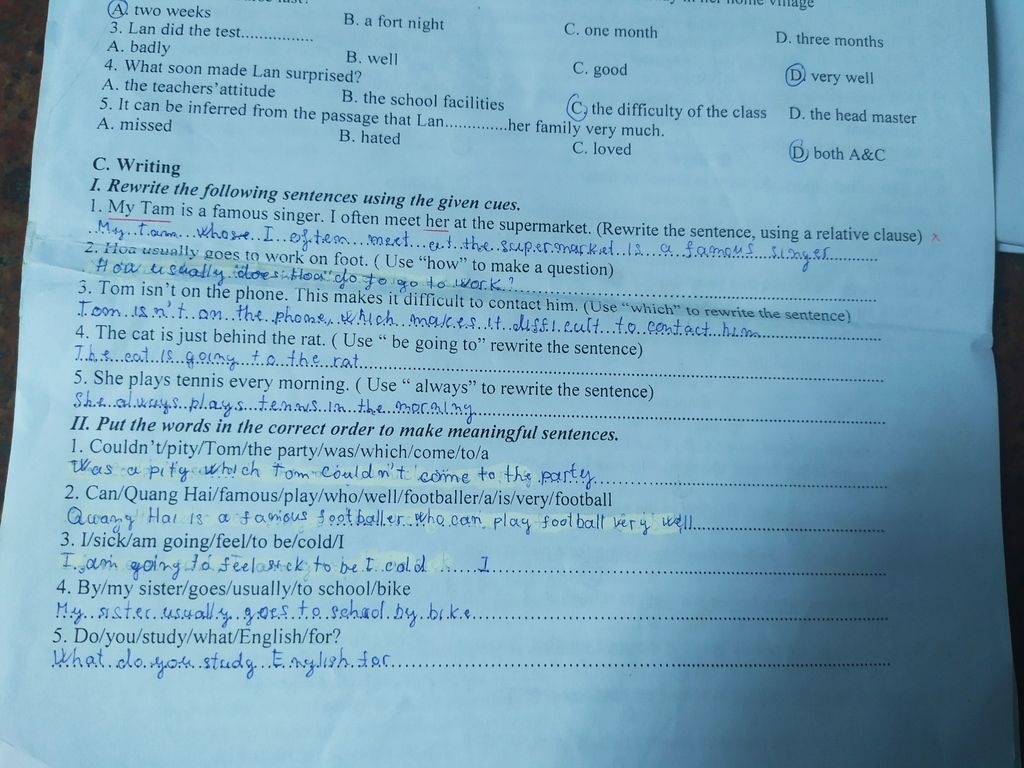 in her home village
A. two weeks B. a fort night C. one month D. three months
3. Lan did the test................
A. badly B. well C. good D. very well
4. What soon made Lan surprised?
A. the teachers'attitude B. the school facilities C. the difficulty of the class D. the head master
5. It can be inferred from the passage that Lan..............her family very much.
A. missed B. hated C. loved D. both A&C
C. Writing
I. Rewrite the following sentences using the given cues.
1. My Tam is a famous singer. I often meet her at the supermarket. (Rewrite the sentence, using a relative clause) x
My tam whose I often meet at the supermarket is a famous singer
2. Hoa usually goes to work on foot. ( Use "how" to make a question)
How usually does Hoa do to go to work?
3. Tom isn't on the phone. This makes it difficult to contact him. (Use "which" to rewrite the sentence)
Tom isn't on the phone, which makes it difficult to contact him
4. The cat is just behind the rat. ( Use " be going to" rewrite the sentence)
The cat is going to the rat
5. She plays tennis every morning. ( Use " always" to rewrite the sentence)
She always plays tennis in the morning
II. Put the words in the correct order to make meaningful sentences.
1. Couldn't/pity/Tom/the party/was/which/come/to/a
Was a pity which Tom couldn't come to the party
2. Can/Quang Hai/famous/play/who/well/footballer/a/is/very/football
Quang Hai is a famous footballer who can play football very well
3. I/sick/am going/feel/to be/cold/I
I am going to feel sick to be I cold I
4. By/my sister/goes/usually/to school/bike
My sister usually goes to school by bike
5. Do/you/study/what/English/for?
What do you study English for